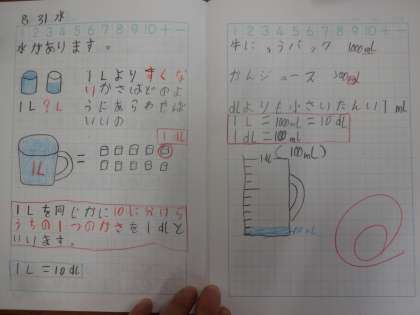 8 31 水
1 2 3 4 5 6 7 8 9 10 + -
水があります。
1Lよりすくな
いかさはどのよ
うにあらわせば
いいの
1L ?L
1dL
1L
=
1Lを同じかに10に分けたう
ちの1つのかさを1dLと
いいます。
1L=10dL
1 2 3 4 5 6 7 8 9 10 + -
牛にゅうパック 1000mL
かんジュース
dLよりも小さいたんい mL
1L=1000mL=10dL
1dL=100mL
(100mL)
1dL